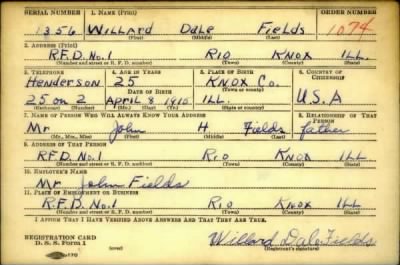 SERIAL NUMBER 1. NAME (Print) ORDER NUMBER
1356 WILLARD Dale Fields 1074
(First) (Middle) (Last)
2. ADDRESS (Print)
R.F.D. No. 1 RIO KNOX ILL.
(Number and street or R. F. D. number) (Town) (County) (State)
3. TELEPHONE 4. AGE IN YEARS 5. PLACE OF BIRTH 6. COUNTRY OF CITIZENSHIP
Henderson 25 KNOX Co.
DATE OF BIRTH (Town or county)
25 on 2 April 8 1915 ILL. U.S.A
(Exchange) (Number) (Mo.) (Day) (Yr.) (State or country)
7. NAME OF PERSON WHO WILL ALWAYS KNOW YOUR ADDRESS 8. RELATIONSHIP OF THAT PERSON
Mr John H Fields father
(Mr., Mrs., Miss) (First) (Middle) (Last)
9. ADDRESS OF THAT PERSON
R.F.D. No. 1 RIO KNOX ILL
(Number and street or R. F. D. number) (Town) (County) (State)
10. EMPLOYER'S NAME
Mr John Fields
11. PLACE OF EMPLOYMENT OR BUSINESS
R.F.D. No. 1 RIO KNOX ILL
(Number and street or R. F. D. number) (Town) (County) (State)
I AFFIRM THAT I HAVE VERIFIED ABOVE ANSWERS AND THAT THEY ARE TRUE.
REGISTRATION CARD
D. S. S. Form 1 (over) Willard Dale Fields
(Registrant's signature)